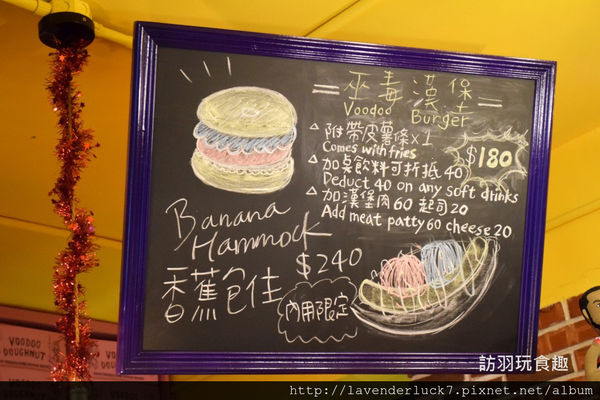 巫毒漢堡
Voodoo Burger
附帶皮薯條x1
Comes with fries
$180
加桌飲料可折抵40
Deduct 40 on any soft drinks
加漢堡肉60 起司20
Add meat patty 60 cheese 20
Banana
Hammock
$240
香蕉包佳
內用限定
VOODOO
DOUGHNUT
訪羽玩食趣
http://lavenderluck7.pixnet.net/album